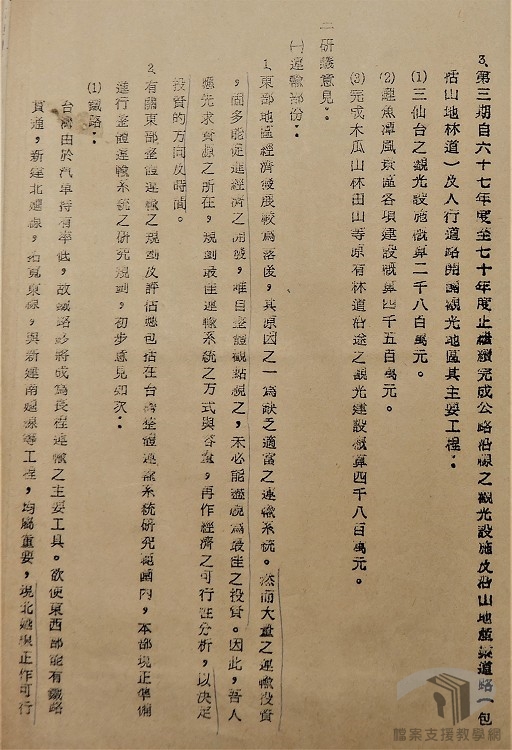 3、第三期自六十七年度至七十年度止繼續完成公路沿線之觀光設施及沿山地產業道路(包
括山地林道)及人行道路開闢觀光地區其主要工程:
(1)三仙台之觀光設施概算二千八百萬元。
(2)鯉魚潭風景區各項建設概算四千五百萬元。
(3)完成木瓜山林田山等原有林道沿途之觀光建設概算四千八百萬元。
二研議意見:
(一)運輸部份:
1、東部地區經濟發展較為落後,其原因之一為缺乏適當之運輸系統。然而大量之運輸投資
,固多能促進經濟之開發,惟自整體觀點視之,未必能遽視為最佳之投資。因此,吾人
應先求資源之所在,規劃最佳運輸系統之方式與容量,再作經濟之可行性分析,以決定
投資的方向及時間。
2、有關東部整體運輸之規劃及評估應包括在台灣整體運輸系統研究範圍內,本部現正準備
進行整體運輸系統之研究規劃,初步意見如次:
(1)鐵路:
台灣由於汽車持有率低,故鐵路必將成為長程運輸之主要工具。欲使東西部能有鐵路
貫通,新建北迴線,拓寬東線,與新建南迴線等工程,均屬重要,現北迴線正作可行
檔案支援教學網